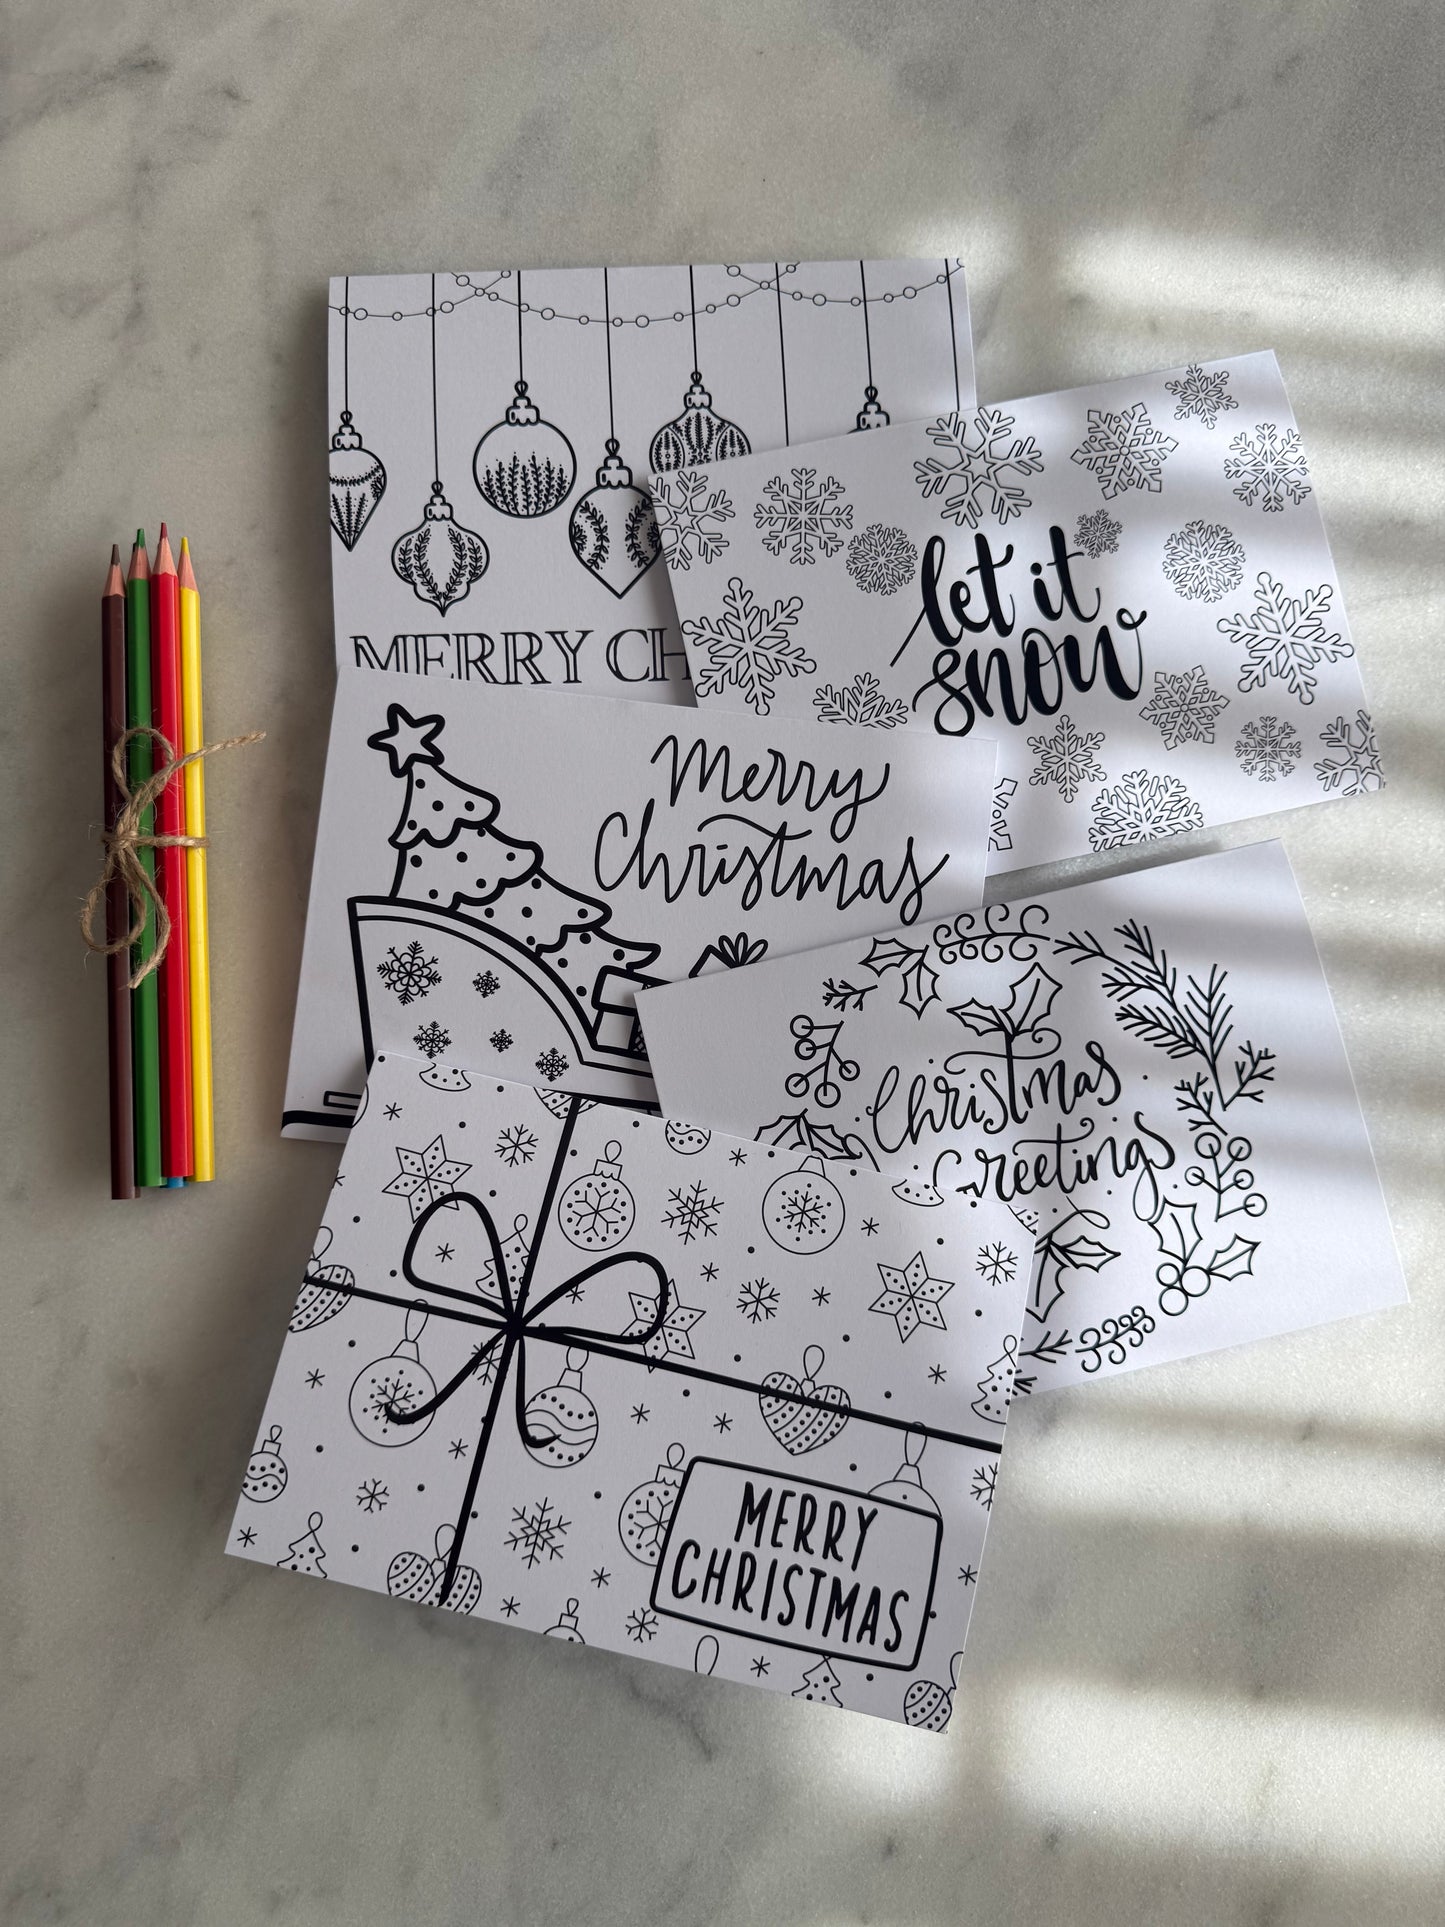 MERRY CH
let it
snow
Merry
Christmas
Christmas
Greetings
MERRY
CHRISTMAS